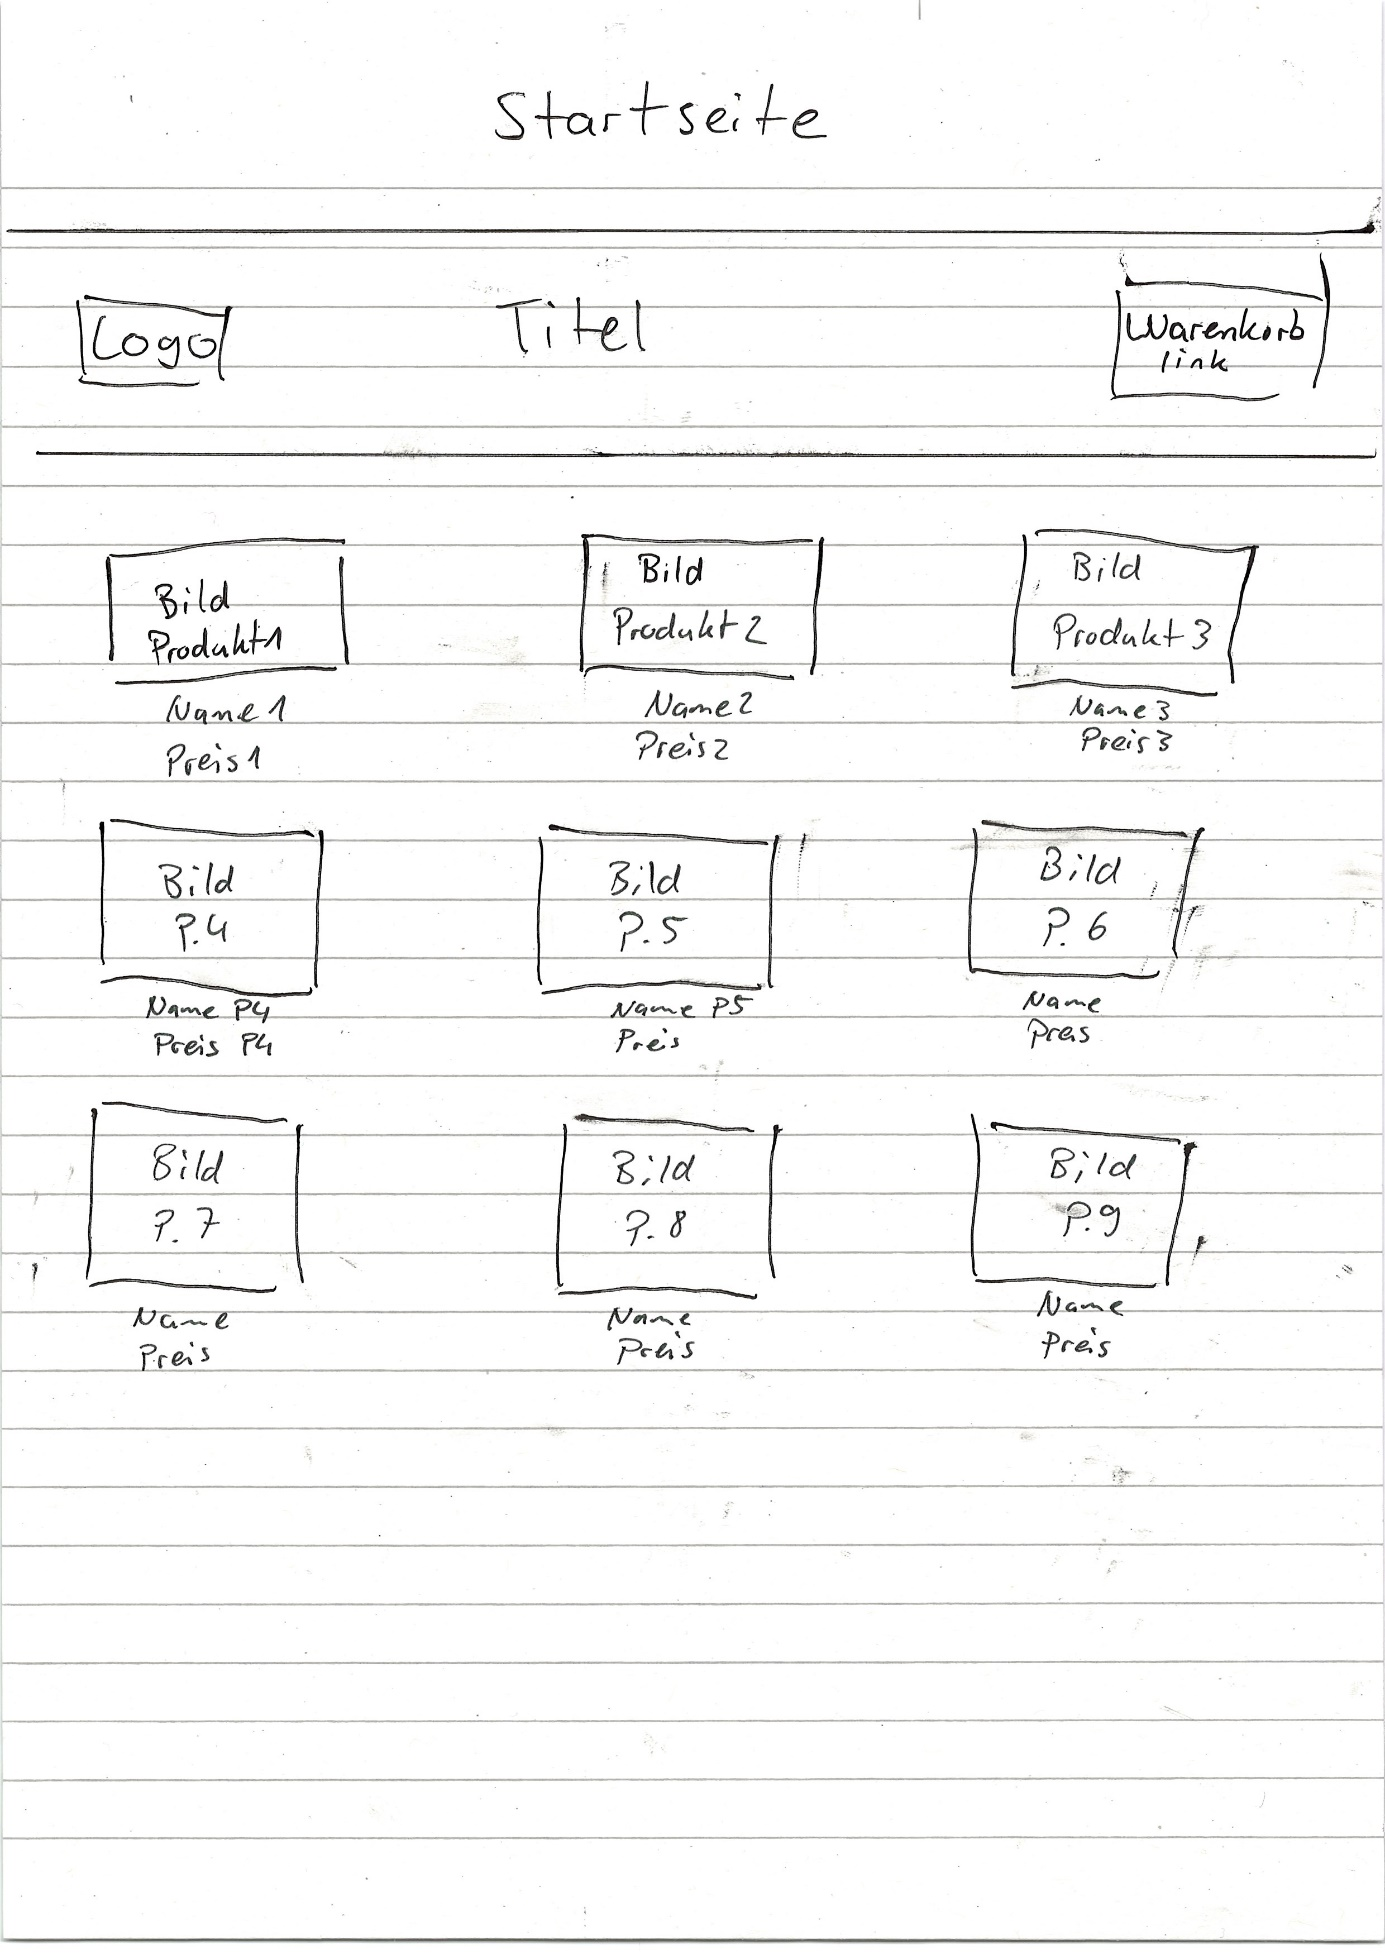 Startseite
Logo
Titel
Warenkorb
link
Bild
Produkt1
Name1
Preis1
Bild
Produkt2
Name2
Preis2
Bild
Produkt3
Name3
Preis3
Bild
P.4
Name P4
Preis P4
Bild
P.5
Name P5
Preis
Bild
P. 6
Name
Preis
Bild
P. 7
Name
Preis
Bild
P. 8
Name
Preis
Bild
P.9
Name
Preis